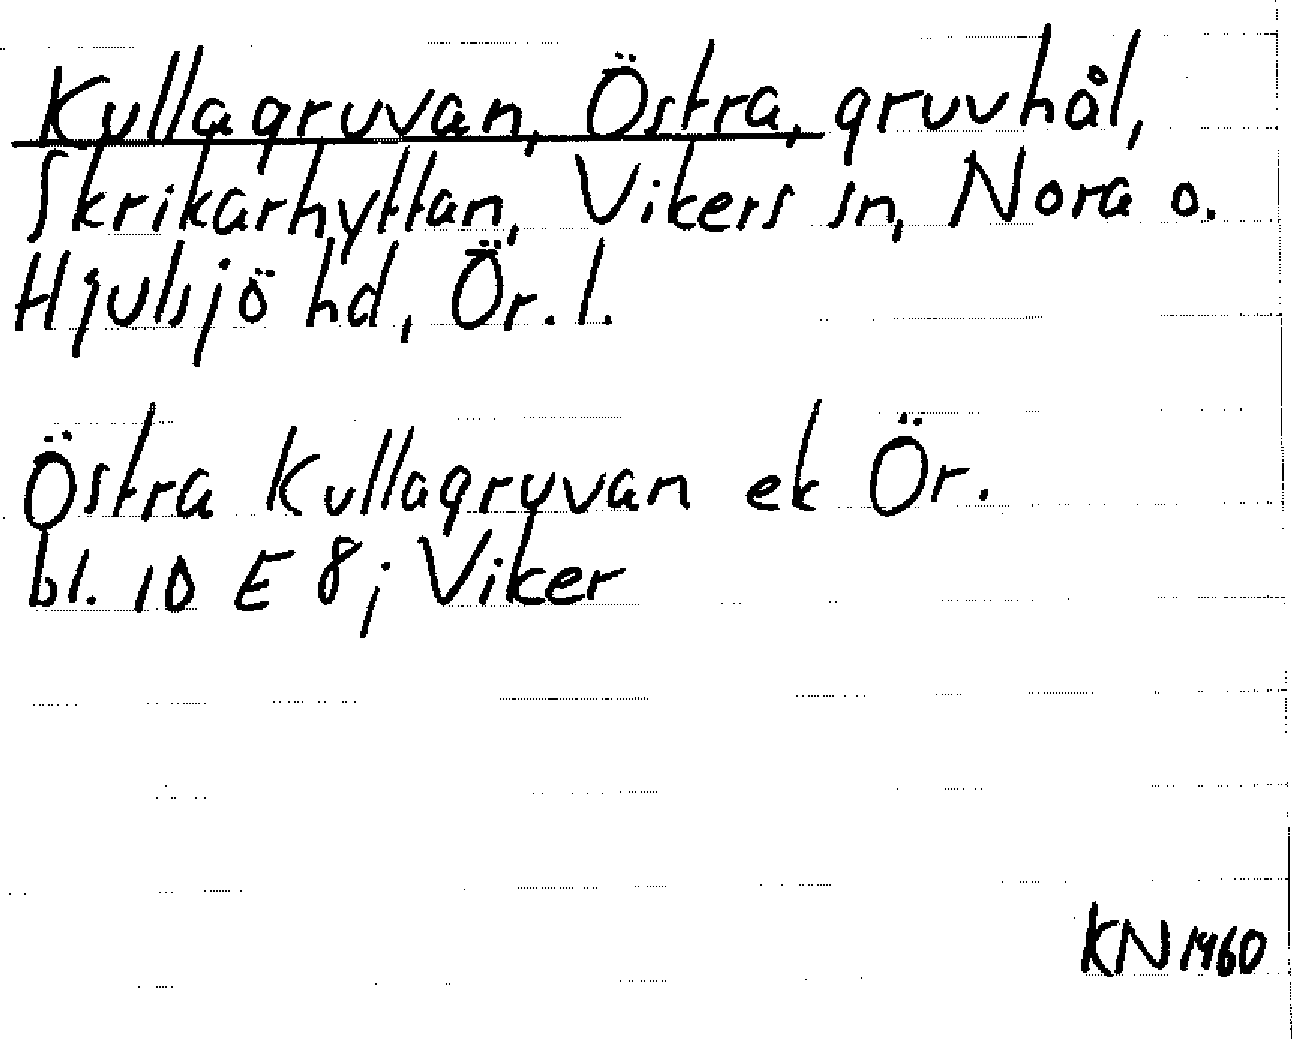 Kullagruvan, Östra, gruvhål,
Skrikarhyttan, Vikers sn, Nora o.
Hjulsjö hd, Ör. l.
Östra Kullagruvan ek Ör.
bl. 10 E 8 j Viker
KN 1960